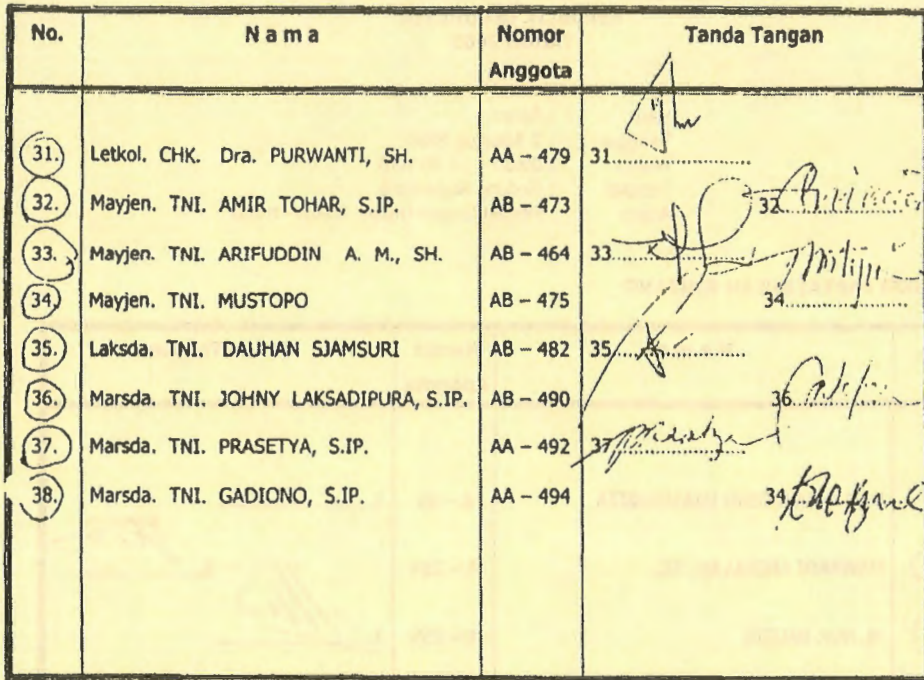 No. N a m a Nomor Anggota Tanda Tangan
31. Letkol. CHK. Dra. PURWANTI, SH. AA – 479 31....................
32. Mayjen. TNI. AMIR TOHAR, S.IP. AB – 473 32....................
33. Mayjen. TNI. ARIFUDDIN A. M., SH. AB – 464 33....................
34. Mayjen. TNI. MUSTOPO AB – 475 34....................
35. Laksda. TNI. DAUHAN SJAMSURI AB – 482 35....................
36. Marsda. TNI. JOHNY LAKSADIPURA, S.IP. AB – 490 36....................
37. Marsda. TNI. PRASETYA, S.IP. AA – 492 37....................
38. Marsda. TNI. GADIONO, S.IP. AA – 494 34